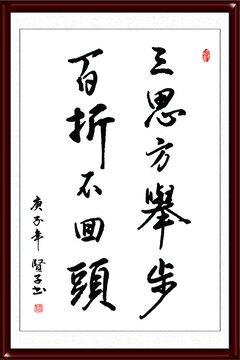 三思方舉步
百折不回頭
庚子年 賢子書